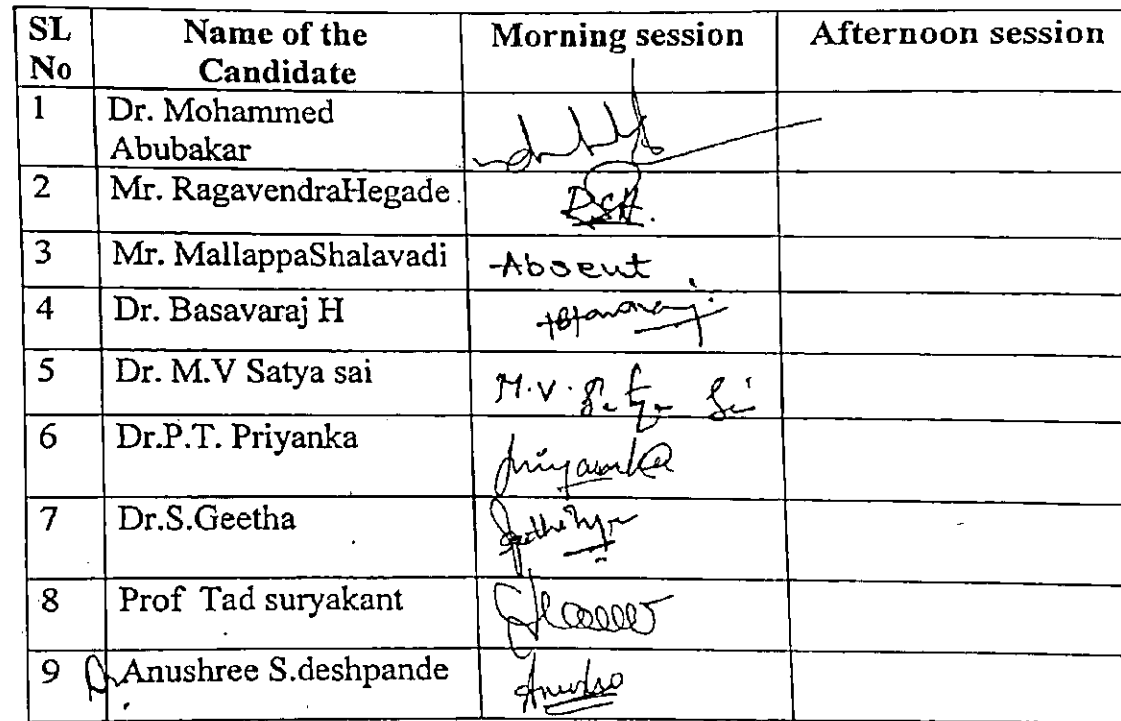 SL No Name of the Candidate Morning session Afternoon session
1 Dr. Mohammed
Abubakar
2 Mr. RagavendraHegade
3 Mr. MallappaShalavadi Absent
4 Dr. Basavaraj H
5 Dr. M.V Satya sai M.V. Satya Sai
6 Dr.P.T. Priyanka Priyanka
7 Dr.S.Geetha
8 Prof Tad suryakant
9 Dr. Anushree S.deshpande